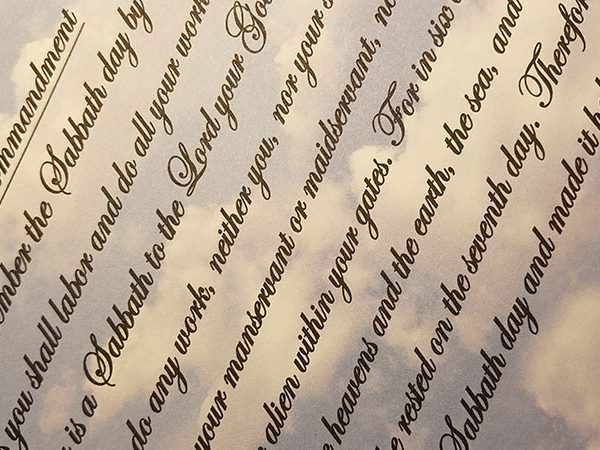 ommandment
mber the Sabbath day by
you shall labor and do all your work
is a Sabbath to the Lord your Go
do any work, neither you, nor your s
your manservant or maidservant, n
alien within your gates. For in six
heavens and the earth, the sea, and
e rested on the seventh day. Therefor
Sabbath day and made it h